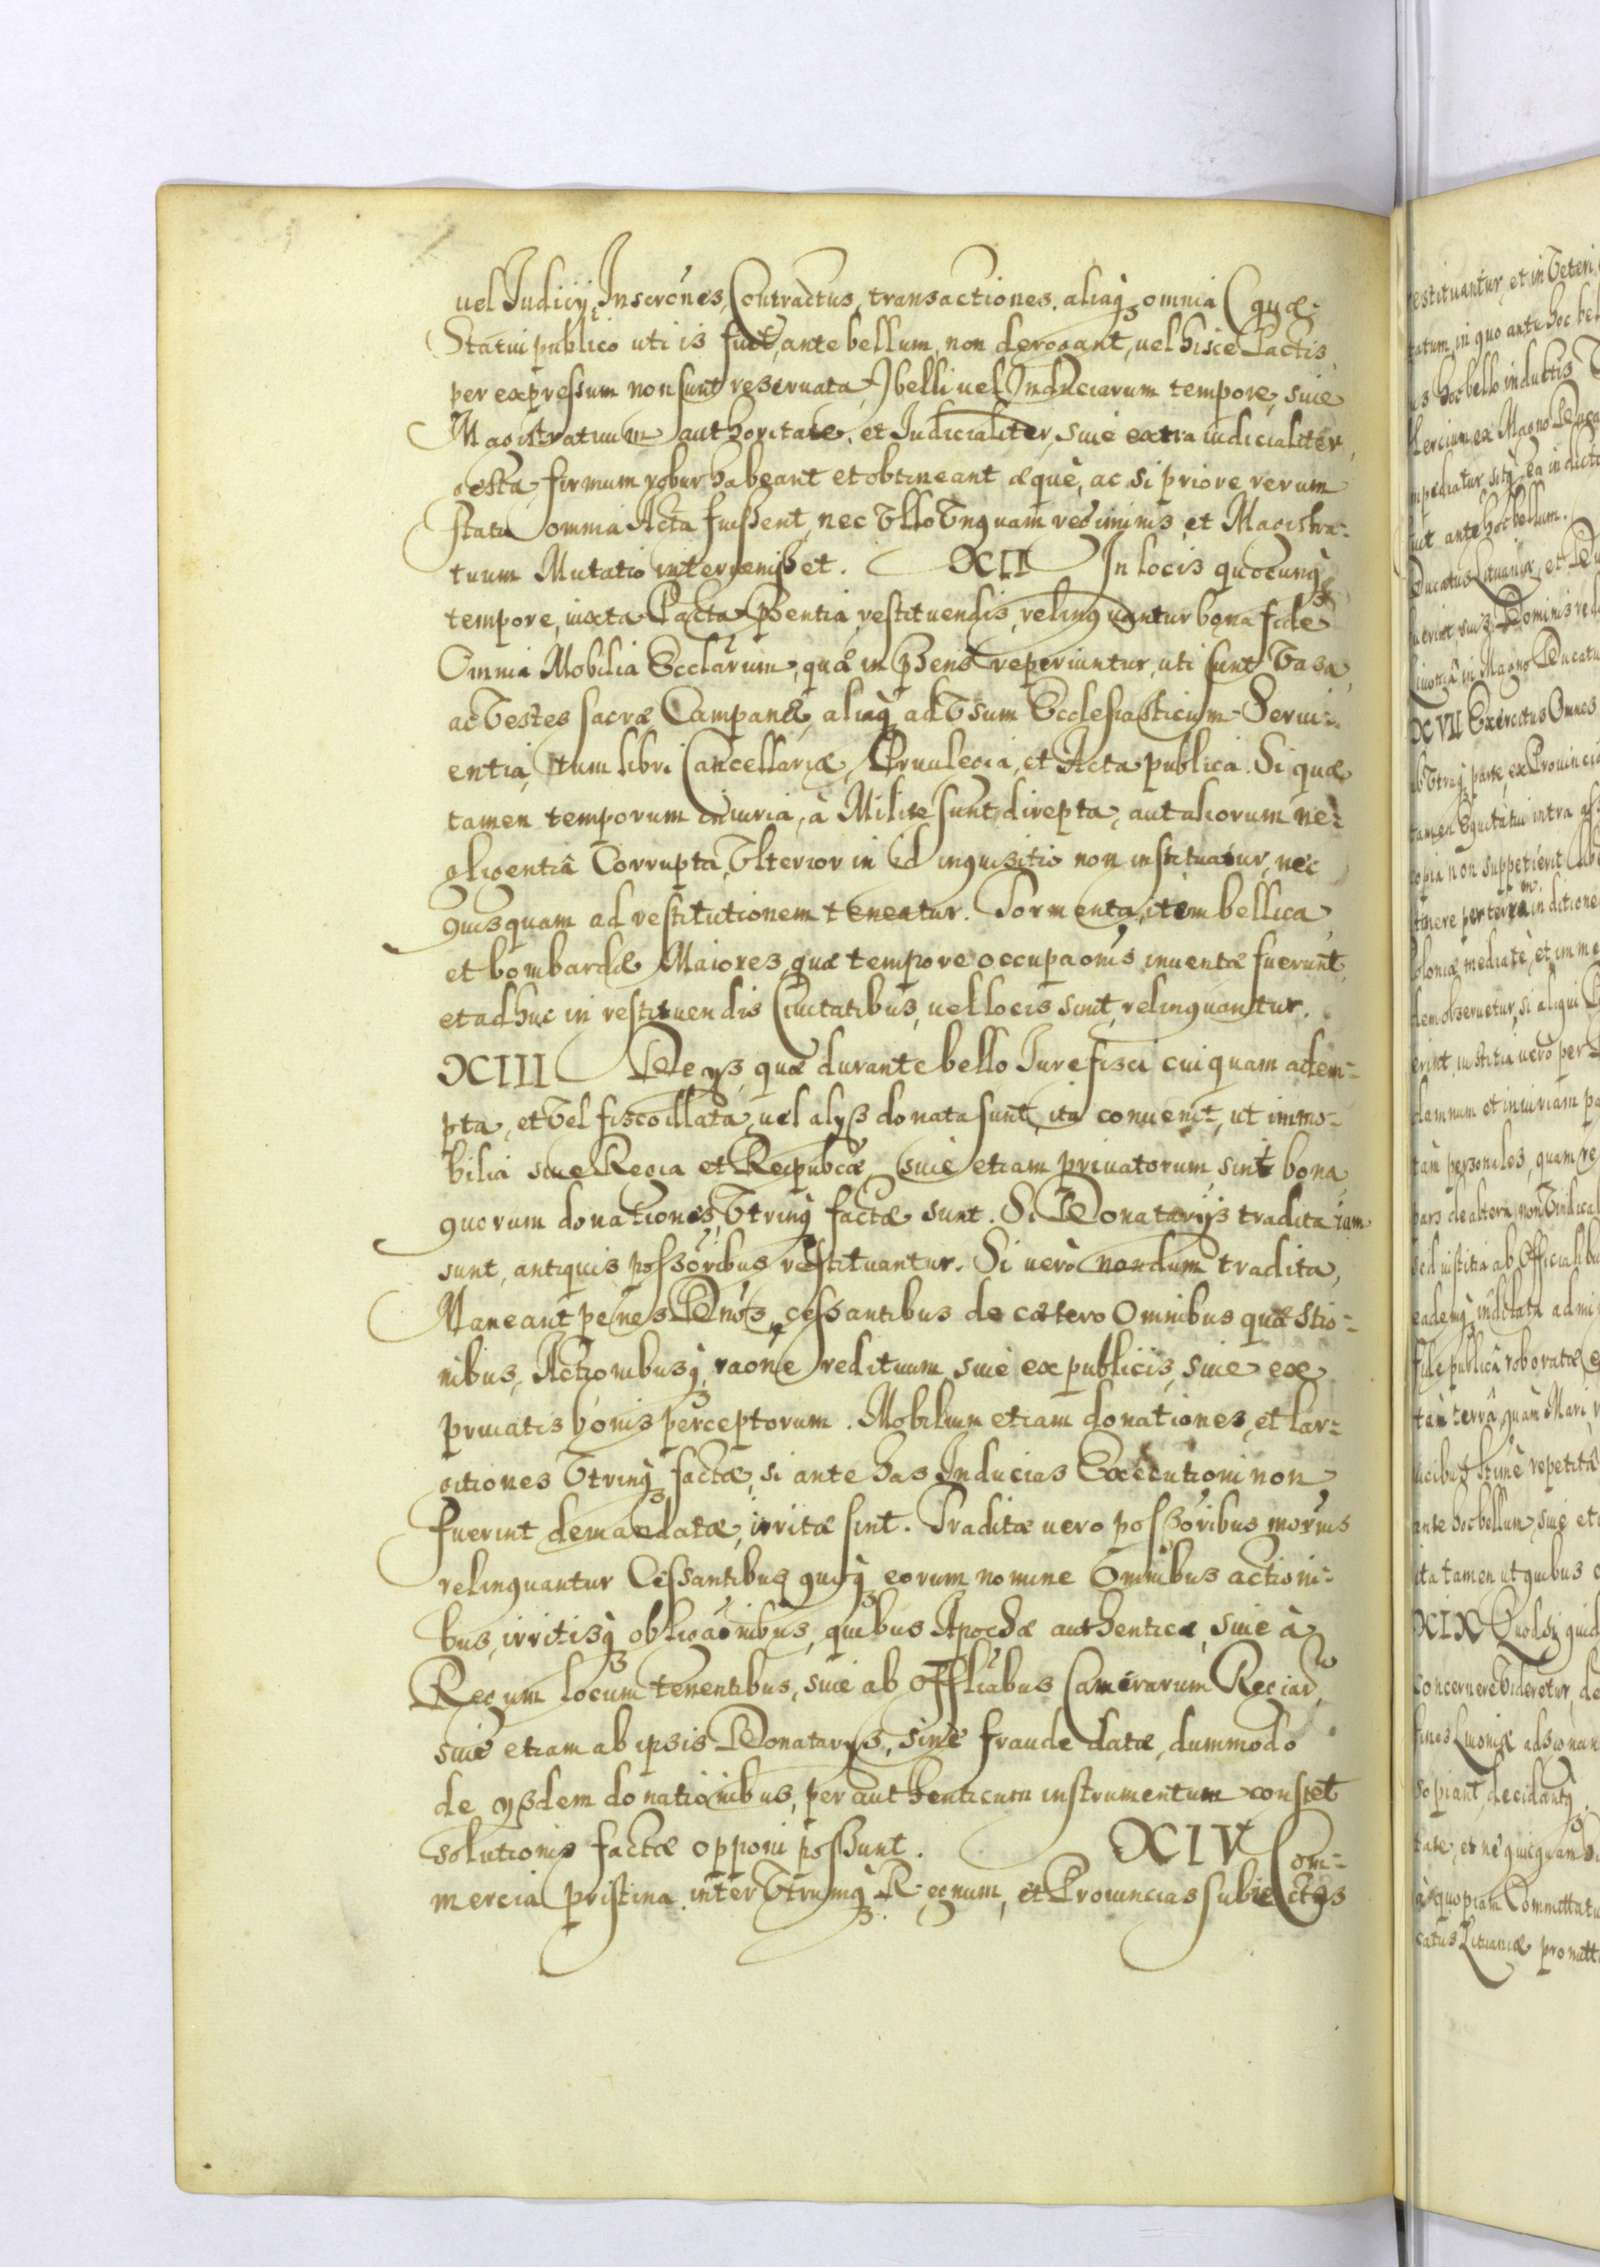 uel Iudicÿ, Inscrōnes, Contractus, transactiones, aliaq; omnia (quæ
Statui publico uti is fuit, ante bellum, non derogant, uel hisce Pactis
per expressum non sunt reseruata,) belli uel Induciarum tempore, siue
Magistratuum authoritate, et Iudicialiter, siue extra iudicialiter,
gesta firmum robur habeant et obtineant æquè, ac si priore rerum
statu omnia Acta fuissent, nec Vllo Vnquam regiminis, et Magistra-
tuum Mutatio interuenisset. XII In locis quocunq;
tempore, iuxta Pacta p̃sentia, restituendis, relinquantur bona fide
Omnia Mobilia Ecclārum, quæ in p̃sens reperiuntur, uti sunt Vasa,
ac Vestes sacræ Campanæ, aliaq; ad Vsum Ecclesiasticum Serui-
entia, tum libri Cancellariæ, Priuilegia, et Acta publica. Si quæ
tamen temporum iniuria, à Milite sunt direpta, aut aliorum ne-
gligentiâ Corrupta, Vlterior in id inquisitio non instituatur, nec
quisquam ad restitutionem teneatur. Tormenta, item bellica,
et bombardæ Maiores, quæ tempore occupaōnis inuentæ fuerunt,
et adhuc in restituendis Ciuitatibus, uel locis sunt, relinquantur.
XIII De ijs, quæ durante bello Iure fisci cuiquam adem-
pta, et Vel fisco illata, uel alijs donata sunt, ita conuenit, ut immo-
bilia siue Regia et Reipublcæ, siue etiam priuatorum sint bona,
quorum donationes, Vtrinq; factæ sunt. Si Donatarijs tradita iam
sunt, antiquis possōribus restituantur. Si uerò nondum tradita,
Maneant penes Dnōs, cessantibus de cætero Omnibus quæstio-
nibus, Actionibusq; raōne redituum, siue ex publicis, siue ex
priuatis bonis perceptorum. Mobilium etiam donationes, et lar-
gitiones Vtrinq; factæ, si ante has Inducias Executioni non
fuerint demandatæ, irritæ sint. Traditæ uero possōribus modernis
relinquantur Cessantibus quoq; eorum nomine Omnibus actioni-
bus, irritisq; obligaōnibus, quibus Apochæ authenticæ, siue à
Regum locum tenentibus, siue ab Offliabus Camerarum Regiar,
siue etiam ab ipsis Donatarijs, sine fraude datæ, dummodo
de ijsdem donationibus, per authenticum instrumentum constet
solutionis factæ opponi possunt. XIV Com-
mercia pristina inter Vtrumq; Regnum, et Prouincias subiectas
estituantur, et in Veteri
tatum, in quo ante hoc bel
is hoc bello inductis
ercium ex Magno Duca
mpediatur, sitq; ea in dicto
uit ante hoc bellum.
Ducatus Lituaniæ, et Du
uerint suis Dominis red
iuoniâ in Magno Ducatu
XVII Exercitus Omnes
ab Vtraq; parte, ex Prouincia
tamen Equitatui intra
copia non suppetierit
itinere per terram in ditione
oloniæ mediatè, et imme
dem obseruetur, si aliqui
erint, iustitia uerò per
damnum et iniuriam pa
tàm personales, quam re
pars de altera, non Vindicat
sed iustitia ab Officialibu
eademq; indilata admi
fide publica roboratæ
tàm terrâ, quàm Mari
ucibus Itinè repetita
ante hoc bellum, siue et
ita tamen ut quibus
XIX Quod si quid
concernere Videretur, de
fines Liuoniæ adsignan
sopiant, decidantq;
tate, et ne quicquam
à quopiam Committatu
catus Lituaniæ promitt